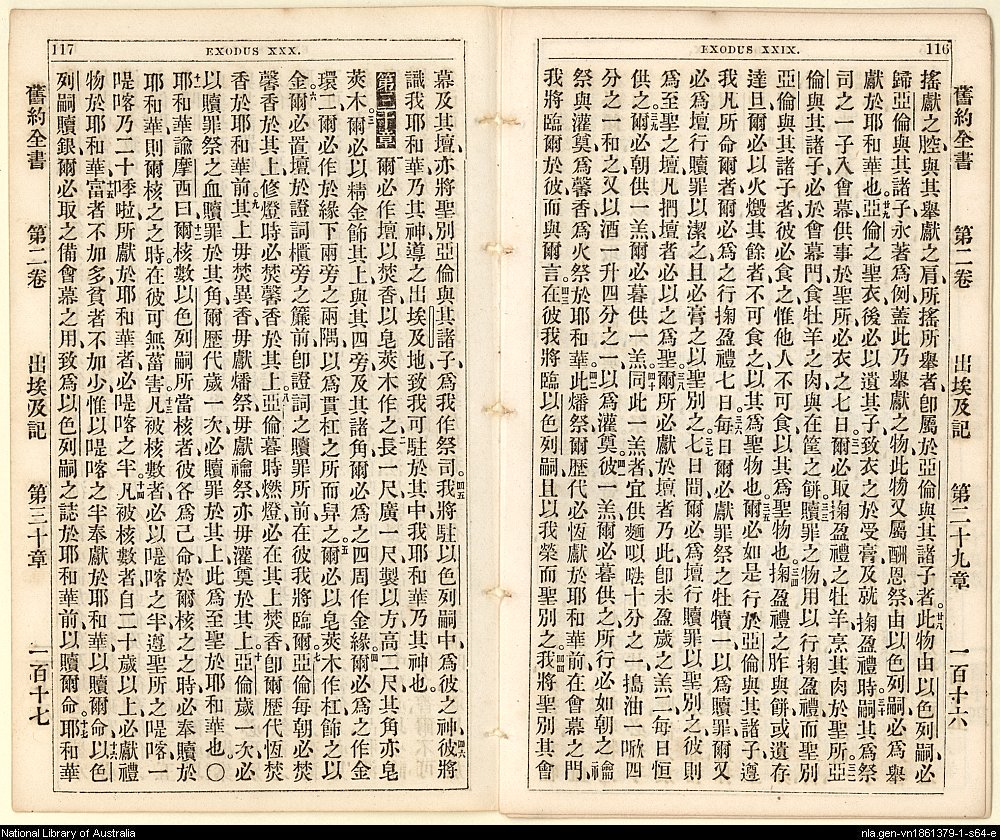 EXODUS XXIX.
116
舊約全書 第二卷 出埃及記 第二十九章 一百十六
搖獻之腔與其舉獻之肩、所搖所舉者、卽屬於亞倫與其諸子者、廿八此物由以色列嗣、必
歸亞倫與其諸子永著爲例、蓋此乃舉獻之物、此物又屬酬恩祭、由以色列嗣必爲舉
獻於耶和華也。廿九亞倫之聖衣、後必以遺其子、致衣之於受膏、及就掬盈禮時、三十嗣其爲祭
司之一子、入會幕供事於聖所、必衣之七日、三一爾必取掬盈禮之牡羊、烹其肉於聖所、三二亞
倫與其諸子、必於會幕門、食牡羊之肉、與在筐之餅、三三贖罪之物、用以行掬盈禮、而聖別
亞倫與其諸子者、彼必食之、惟他人不可食、以其爲聖物也、三四掬盈禮之胙與餅、或遺存
達旦、爾必以火燬其餘者、不可食之、以其爲聖物也。三五爾必如是行於亞倫與其諸子、遵
我凡所命爾者、爾必爲之行掬盈禮七日、三六每日爾必獻罪祭之牡犢一、以爲贖罪、爾又
必爲壇行贖罪以潔之、且必膏之以聖別之、三七七日間爾必爲壇行贖罪、以聖別之、彼則
爲至聖之壇、凡捫壇者、必以之爲聖、三八爾所必獻於壇者乃此、卽未盈歲之羔二、每日恒
供之、三九爾必朝供一羔、爾必暮供一羔、四十同此一羔者、宜供麵㕥㗂十分之一、搗油一㗀四
分之一和之、又以酒一升四分之一、以爲灌奠、四一彼一羔、爾必暮供之、所行必如朝之禴
祭與灌奠、爲馨香、爲火祭於耶和華、四二此燔祭、爾歷代必恆獻於耶和華前、在會幕之門、
我將臨爾於彼、而與爾言、四三在彼我將臨以色列嗣、且以我榮而聖別之、四四我將聖別其會
117
EXODUS XXX.
幕及其壇、亦將聖別亞倫與其諸子、爲我作祭司。四五我將駐以色列嗣中、爲彼之神、四六彼將
識我耶和華、乃其神導之出埃及地、致我可駐於其中、我耶和華乃其神也。
第三十章 一爾必作壇以焚香、以皂莢木作之、二長一尺、廣一尺、製以方、高二尺、其角亦皂
莢木、三爾必以精金飾其上、與其四旁、及其諸角、爾必爲之四周作金緣、四爾必爲之作金
環二、爾必作於緣下兩旁之兩隅、以爲貫杠之所而舁之、五爾必以皂莢木作杠、飾之以
金、六爾必置壇於證詞櫃旁之簾前、卽證詞之贖罪所前、在彼我將臨爾、七亞倫每朝必焚
馨香於其上、修燈時必焚馨香於其上、八亞倫暮時燃燈、必在其上焚香、卽爾歷代恆焚
香於耶和華前、九其上毋焚異香、毋獻燔祭、毋獻禴祭、亦毋灌奠於其上、十亞倫歲一次、必
以贖罪祭之血贖罪於其角、爾歷代歲一次必贖罪於其上、此爲至聖於耶和華也。〇
十一耶和華諭摩西曰、十二爾核數以色列嗣所當核者、彼各爲己命、於爾核之之時、必奉贖於
耶和華、則爾核之之時、在彼可無菑害、十三凡被核數者、必以㖷喀之半、遵聖所之㖷喀、一
㖷喀乃二十季啦、所獻於耶和華者必㖷喀之半、十四凡被核數者、自二十歲以上、必獻禮
物於耶和華、十五富者不加多、貧者不加少、惟以㖷喀之半奉獻於耶和華、以贖爾命、十六以色
列嗣贖銀、爾必取之、備會幕之用、致爲以色列嗣之誌於耶和華前、以贖爾命、十七耶和華
舊約全書 第二卷 出埃及記 第三十章 一百十七
National Library of Australia
nla.gen-vn1861379-1-s64-e